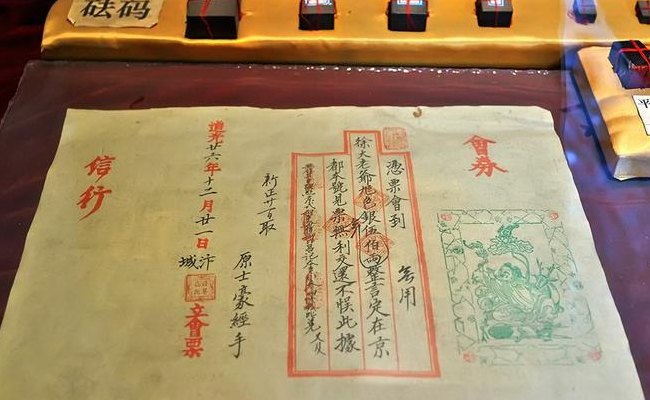 砝码
會券
憑票會到
徐大老爺足色銀伍佰兩整言定在京
都本號見票無利交還不悞此據
原士豪經手
道光廿六年十二月廿一日
汴城
立會票
信行